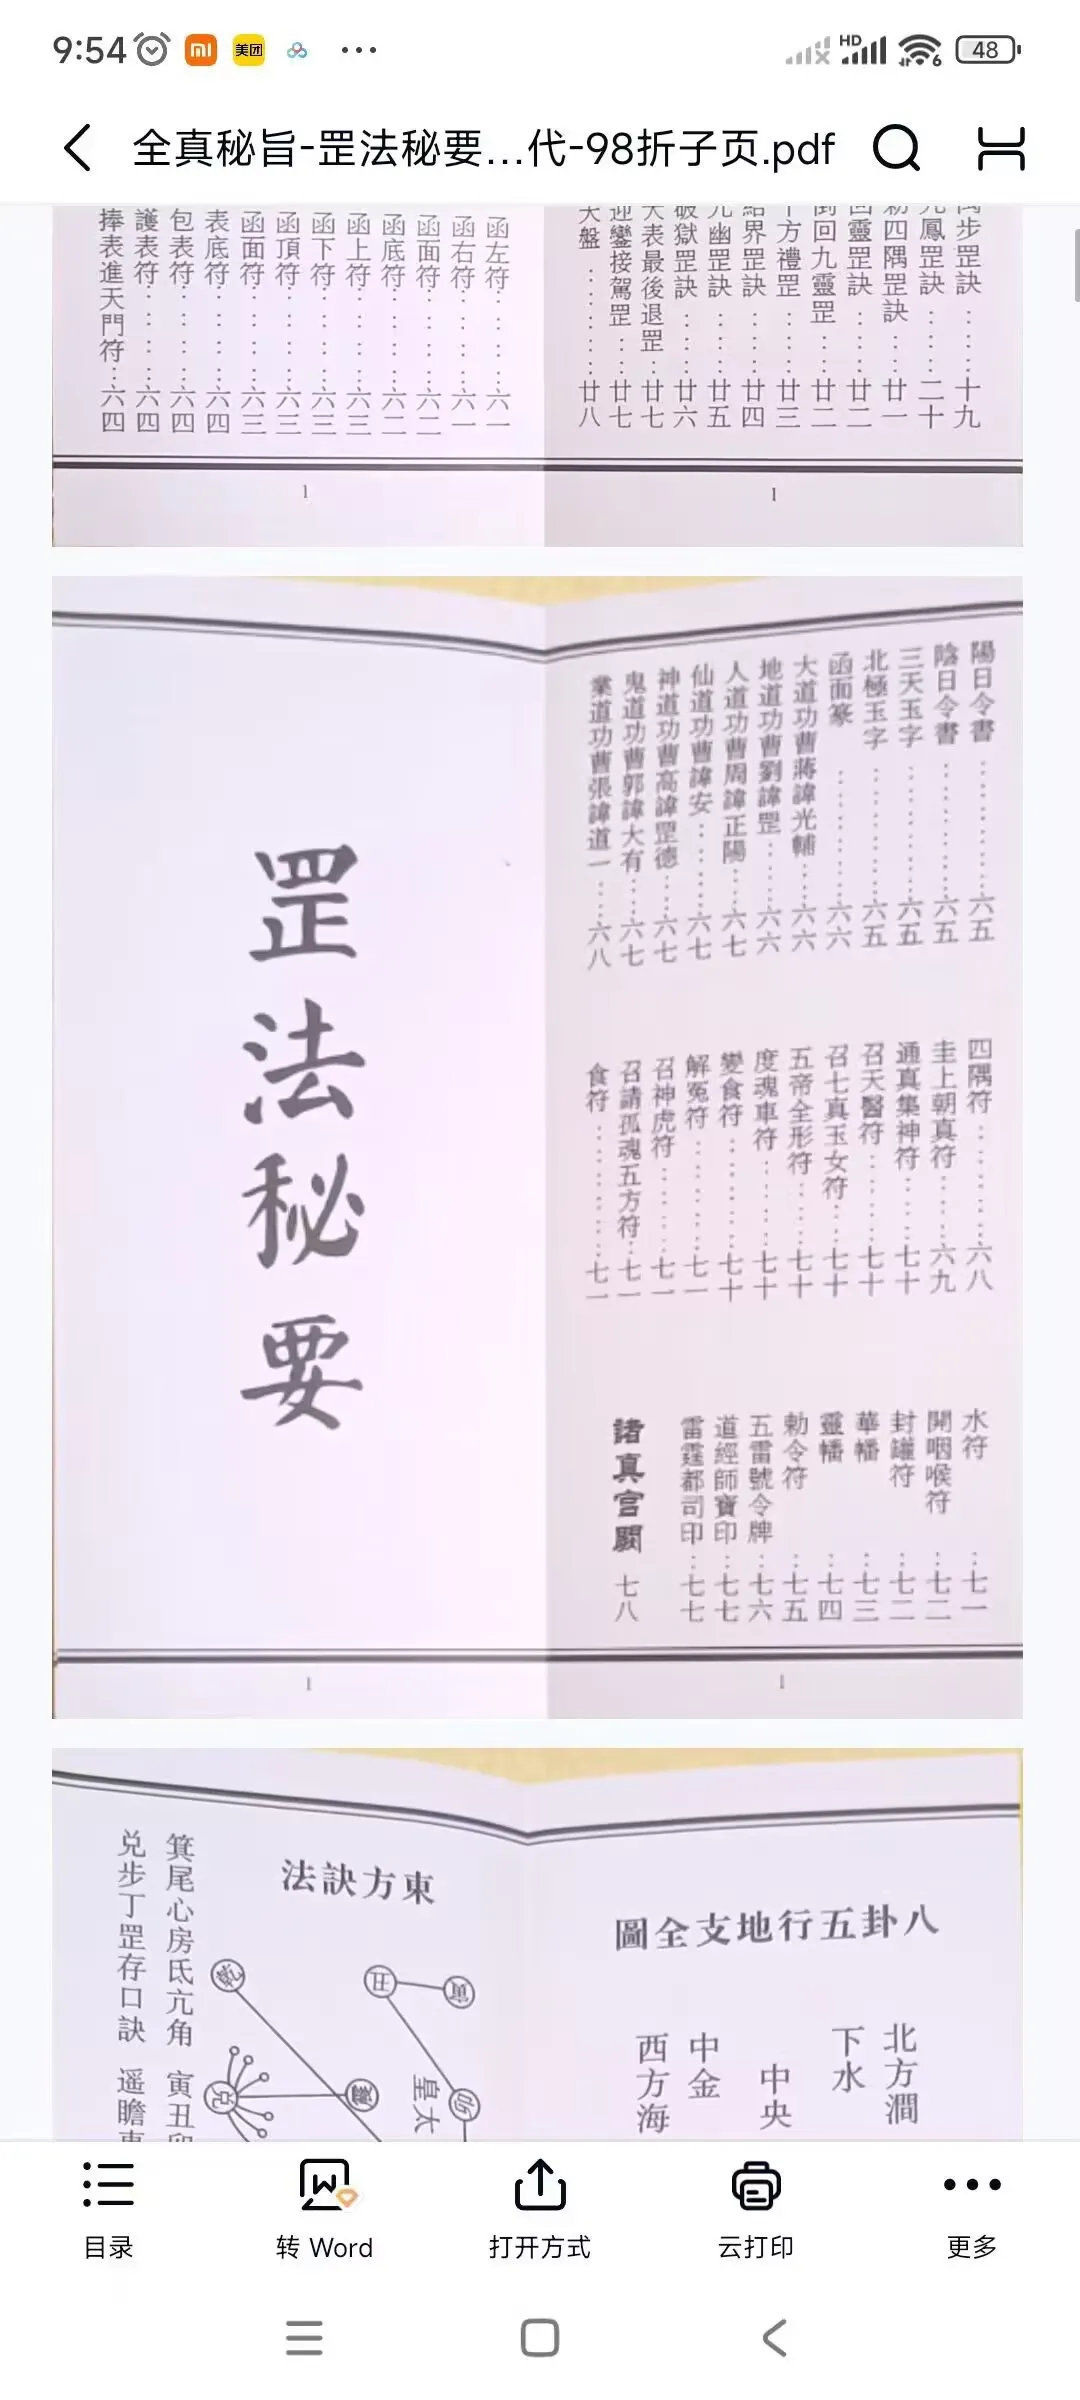 9:54
美团
HD
6
48
全真秘旨-罡法秘要...代-98折子页.pdf
步罡訣……十九
鳳罡訣……二十
四隅罡訣……廿一
回靈罡訣……廿二
倒回九靈罡……廿二
十方禮罡……廿三
結界罡訣……廿四
九幽罡訣……廿五
破獄罡訣……廿六
大表最後退罡……廿七
迎鑾接駕罡……廿七
天盤……廿八
函左符……六一
函右符……六一
函面符……六二
函底符……六二
函上符……六三
函下符……六三
函頂符……六三
函面符……六三
表底符……六四
包表符……六四
護表符……六四
捧表進天門符……六四
1
1
陽日令書……六五
陰日令書……六五
三天玉字……六五
北極玉字……六五
函面篆……六六
大道功曹蔣諱光輔……六六
地道功曹劉諱罡……六六
人道功曹周諱正陽……六七
仙道功曹諱安……六七
神道功曹高諱罡德……六七
鬼道功曹郭諱大有……六七
業道功曹張諱道一……六八
四隅符……六八
圭上朝真符……六九
通真集神符……七十
召天醫符……七十
召七真玉女符……七十
五帝全形符……七十
度魂車符……七十
變食符……七十
解冤符……七一
召神虎符……七一
召請孤魂五方符……七一
食符……七一
水符……七一
開咽喉符……七二
封罐符……七二
華幡……七三
靈幡……七四
勅令符……七五
五雷號令牌……七六
道經師寶印……七七
雷霆都司印……七七
諸真宮闕 七八
罡法秘要
1
1
圖全支地行五卦八
北方澗
下水
中央
中金
西方海
法訣方東
寅
丑
卯
皇太
乾
震
兌
箕尾心房氐亢角 寅丑卯
兌步丁罡存口訣 遥瞻東
目录
转 Word
打开方式
云打印
更多